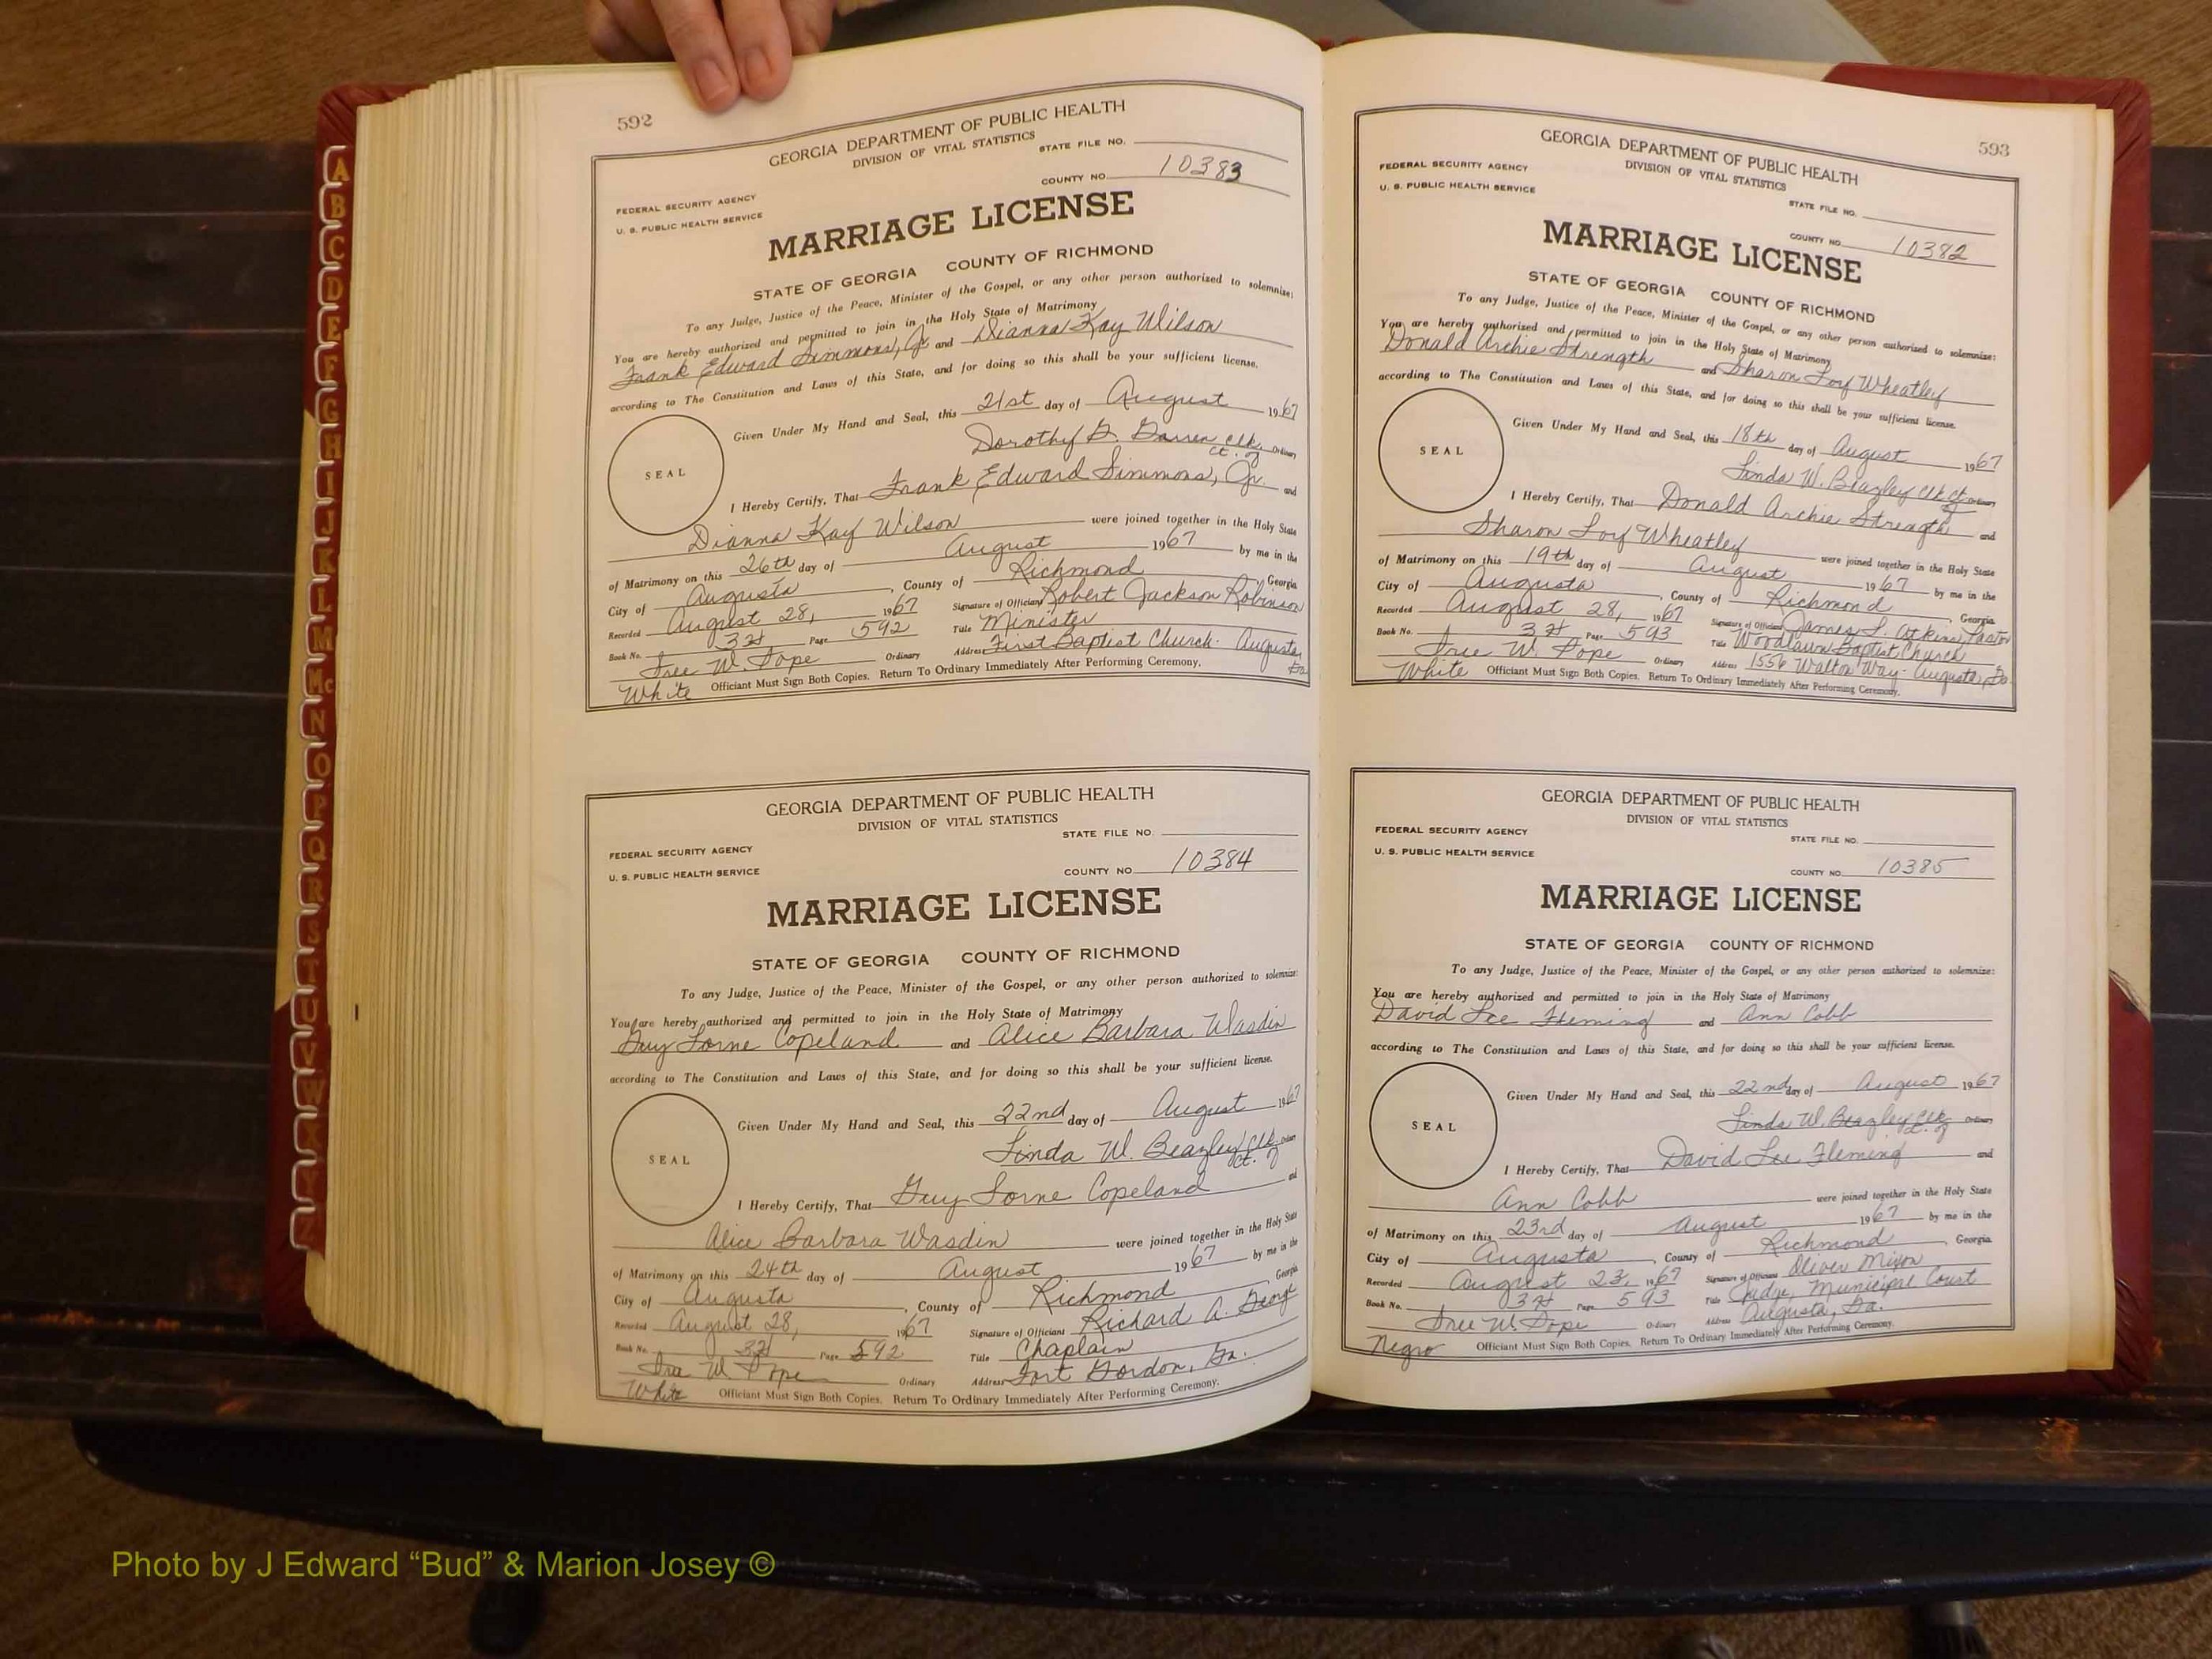 592
GEORGIA DEPARTMENT OF PUBLIC HEALTH
DIVISION OF VITAL STATISTICS
STATE FILE NO.
COUNTY NO. 10383
FEDERAL SECURITY AGENCY
U. S. PUBLIC HEALTH SERVICE
MARRIAGE LICENSE
STATE OF GEORGIA COUNTY OF RICHMOND
To any Judge, Justice of the Peace, Minister of the Gospel, or any other person authorized to solemnize:
You are hereby authorized and permitted to join in the Holy State of Matrimony
Frank Edward Simmons, Jr. and Dianna Kay Wilson
according to The Constitution and Laws of this State, and for doing so this shall be your sufficient license.
Given Under My Hand and Seal, this 21st day of August 1967
Dorothy G. Clk. Ct. of Ordinary
SEAL
I Hereby Certify, That Frank Edward Simmons, Jr. and
Dianna Kay Wilson were joined together in the Holy State
of Matrimony on this 26th day of August 1967 by me in the
City of Augusta, County of Richmond, Georgia
Recorded August 28, 1967 Signature of Officiant Robert Jackson Robinson
Book No. 3 Page 592 Title Minister
W. Pope Ordinary Address First Baptist Church. Augusta, Ga.
White Officiant Must Sign Both Copies. Return To Ordinary Immediately After Performing Ceremony.
GEORGIA DEPARTMENT OF PUBLIC HEALTH
DIVISION OF VITAL STATISTICS
STATE FILE NO.
FEDERAL SECURITY AGENCY
U. S. PUBLIC HEALTH SERVICE
COUNTY NO. 10384
MARRIAGE LICENSE
STATE OF GEORGIA COUNTY OF RICHMOND
To any Judge, Justice of the Peace, Minister of the Gospel, or any other person authorized to solemnize:
You are hereby authorized and permitted to join in the Holy State of Matrimony
Guy Lorne Copeland and Alice Barbara Wasdin
according to The Constitution and Laws of this State, and for doing so this shall be your sufficient license.
Given Under My Hand and Seal, this 22nd day of August 1967
Linda W. Beazley Clk. Ct. of Ordinary
SEAL
I Hereby Certify, That Guy Lorne Copeland and
Alice Barbara Wasdin were joined together in the Holy State
of Matrimony on this 24th day of August 1967 by me in the
City of Augusta, County of Richmond, Georgia
Recorded August 28, 1967 Signature of Officiant Richard A. George
Book No. 3 Page 592 Title Chaplain
W Pope Ordinary Address Fort Gordon, Ga.
White Officiant Must Sign Both Copies. Return To Ordinary Immediately After Performing Ceremony.
593
GEORGIA DEPARTMENT OF PUBLIC HEALTH
DIVISION OF VITAL STATISTICS
FEDERAL SECURITY AGENCY
U. S. PUBLIC HEALTH SERVICE
STATE FILE NO.
COUNTY NO. 10382
MARRIAGE LICENSE
STATE OF GEORGIA COUNTY OF RICHMOND
To any Judge, Justice of the Peace, Minister of the Gospel, or any other person authorized to solemnize:
You are hereby authorized and permitted to join in the Holy State of Matrimony
Donald Archie Strength and Sharon Loy Wheatley
according to The Constitution and Laws of this State, and for doing so this shall be your sufficient license.
Given Under My Hand and Seal, this 18th day of August 1967
Linda W. Beazley Clk Ct of Ordinary
SEAL
I Hereby Certify, That Donald Archie Strength and
Sharon Loy Wheatley were joined together in the Holy State
of Matrimony on this 19th day of August 1967 by me in the
City of Augusta, County of Richmond, Georgia
Recorded August 28, 1967 Signature of Officiant James L. Atkins, Pastor
Book No. 3 Page 593 Title Woodlawn Baptist Church
W. Pope Ordinary Address 1556 Walton Way - Augusta, Ga.
White Officiant Must Sign Both Copies. Return To Ordinary Immediately After Performing Ceremony.
GEORGIA DEPARTMENT OF PUBLIC HEALTH
DIVISION OF VITAL STATISTICS
FEDERAL SECURITY AGENCY
STATE FILE NO.
U. S. PUBLIC HEALTH SERVICE
COUNTY NO. 10385
MARRIAGE LICENSE
STATE OF GEORGIA COUNTY OF RICHMOND
To any Judge, Justice of the Peace, Minister of the Gospel, or any other person authorized to solemnize:
You are hereby authorized and permitted to join in the Holy State of Matrimony
David Lee Fleming and Ann Cobb
according to The Constitution and Laws of this State, and for doing so this shall be your sufficient license.
Given Under My Hand and Seal, this 22nd day of August 1967
Linda W. Beazley Clk. Ct. of Ordinary
SEAL
I Hereby Certify, That David Lee Fleming and
Ann Cobb were joined together in the Holy State
of Matrimony on this 23rd day of August 1967 by me in the
City of Augusta, County of Richmond, Georgia
Recorded August 23, 1967 Signature of Officiant Oliver Mixon
Book No. 3 Page 593 Title Judge, Municipal Court
W. Pope Ordinary Address Augusta, Ga.
Negro Officiant Must Sign Both Copies. Return To Ordinary Immediately After Performing Ceremony.
A
B
C
D
E
F
G
H
I
J
K
L
M
Mc
N
O
P
Q
R
S
T
U
V
W
X
Y
Z
Photo by J Edward “Bud” & Marion Josey ©